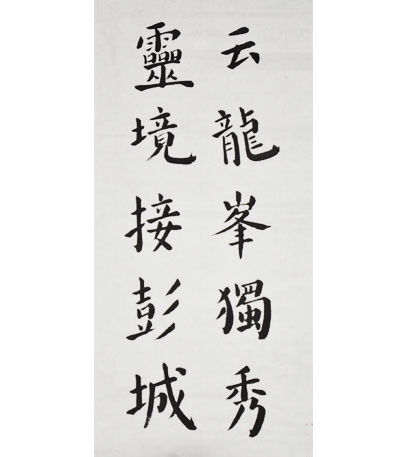 云龍峯獨秀
靈境接彭城